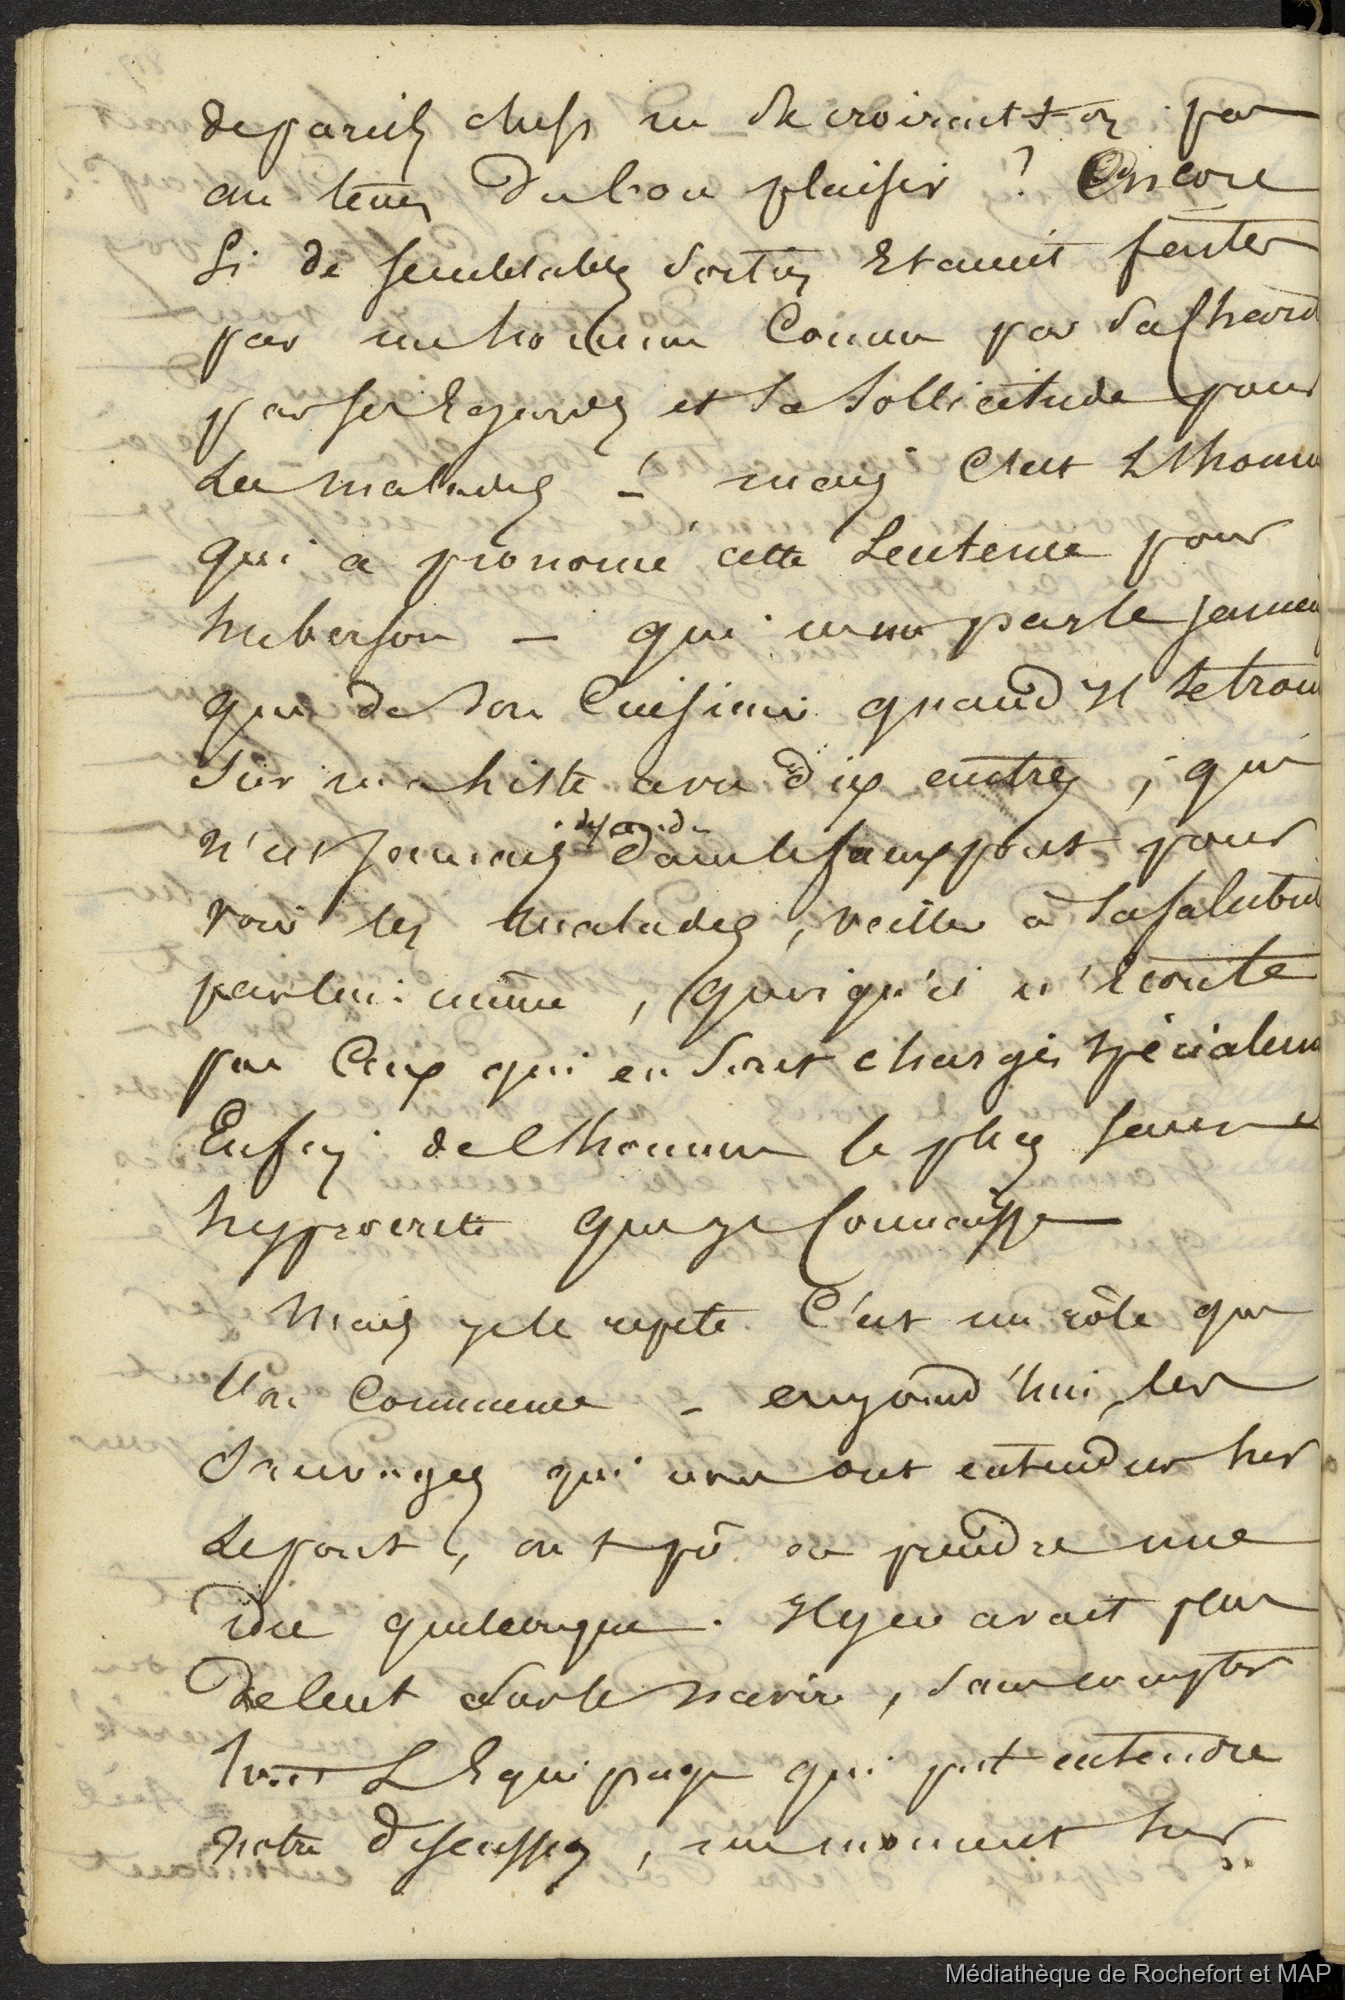 de pareils chefs ne se croirait-on pas
au temps du bon plaisir ? Encore
Si de semblables sorties Etaient faites
par un homme Connu par sa Chari
par ses Egards et sa sollicitude pour
Les malades – ! mais C'est L'homm
qui a prononcé cette Sentence pour
huberson – qui ne nous parle jamai
que de son Cuisinier quand Il se trou
sur une liste avec dix autres ; qui
n'est jamais descendu dans le faux pont pour
voir les malades, veiller à la salubri
par lui même, quoiqu'il n'Ecoute
pas Ceux qui en sont chargés spécialem
Enfin de l'homme le plus
hypocrite que je Connaisse
Mais je le repete. C'est un rôle que
l'on Commence – aujourd'hui les
Sauvages qui nous ont entendus sur
Le pont, ont pû en prendre une
idée quelconque. Il y en avait plus
de Cent sur le navire, sans compter
tout L'Equipage qui put entendre
notre discussion, un moment sur
Médiathèque de Rochefort et MAP